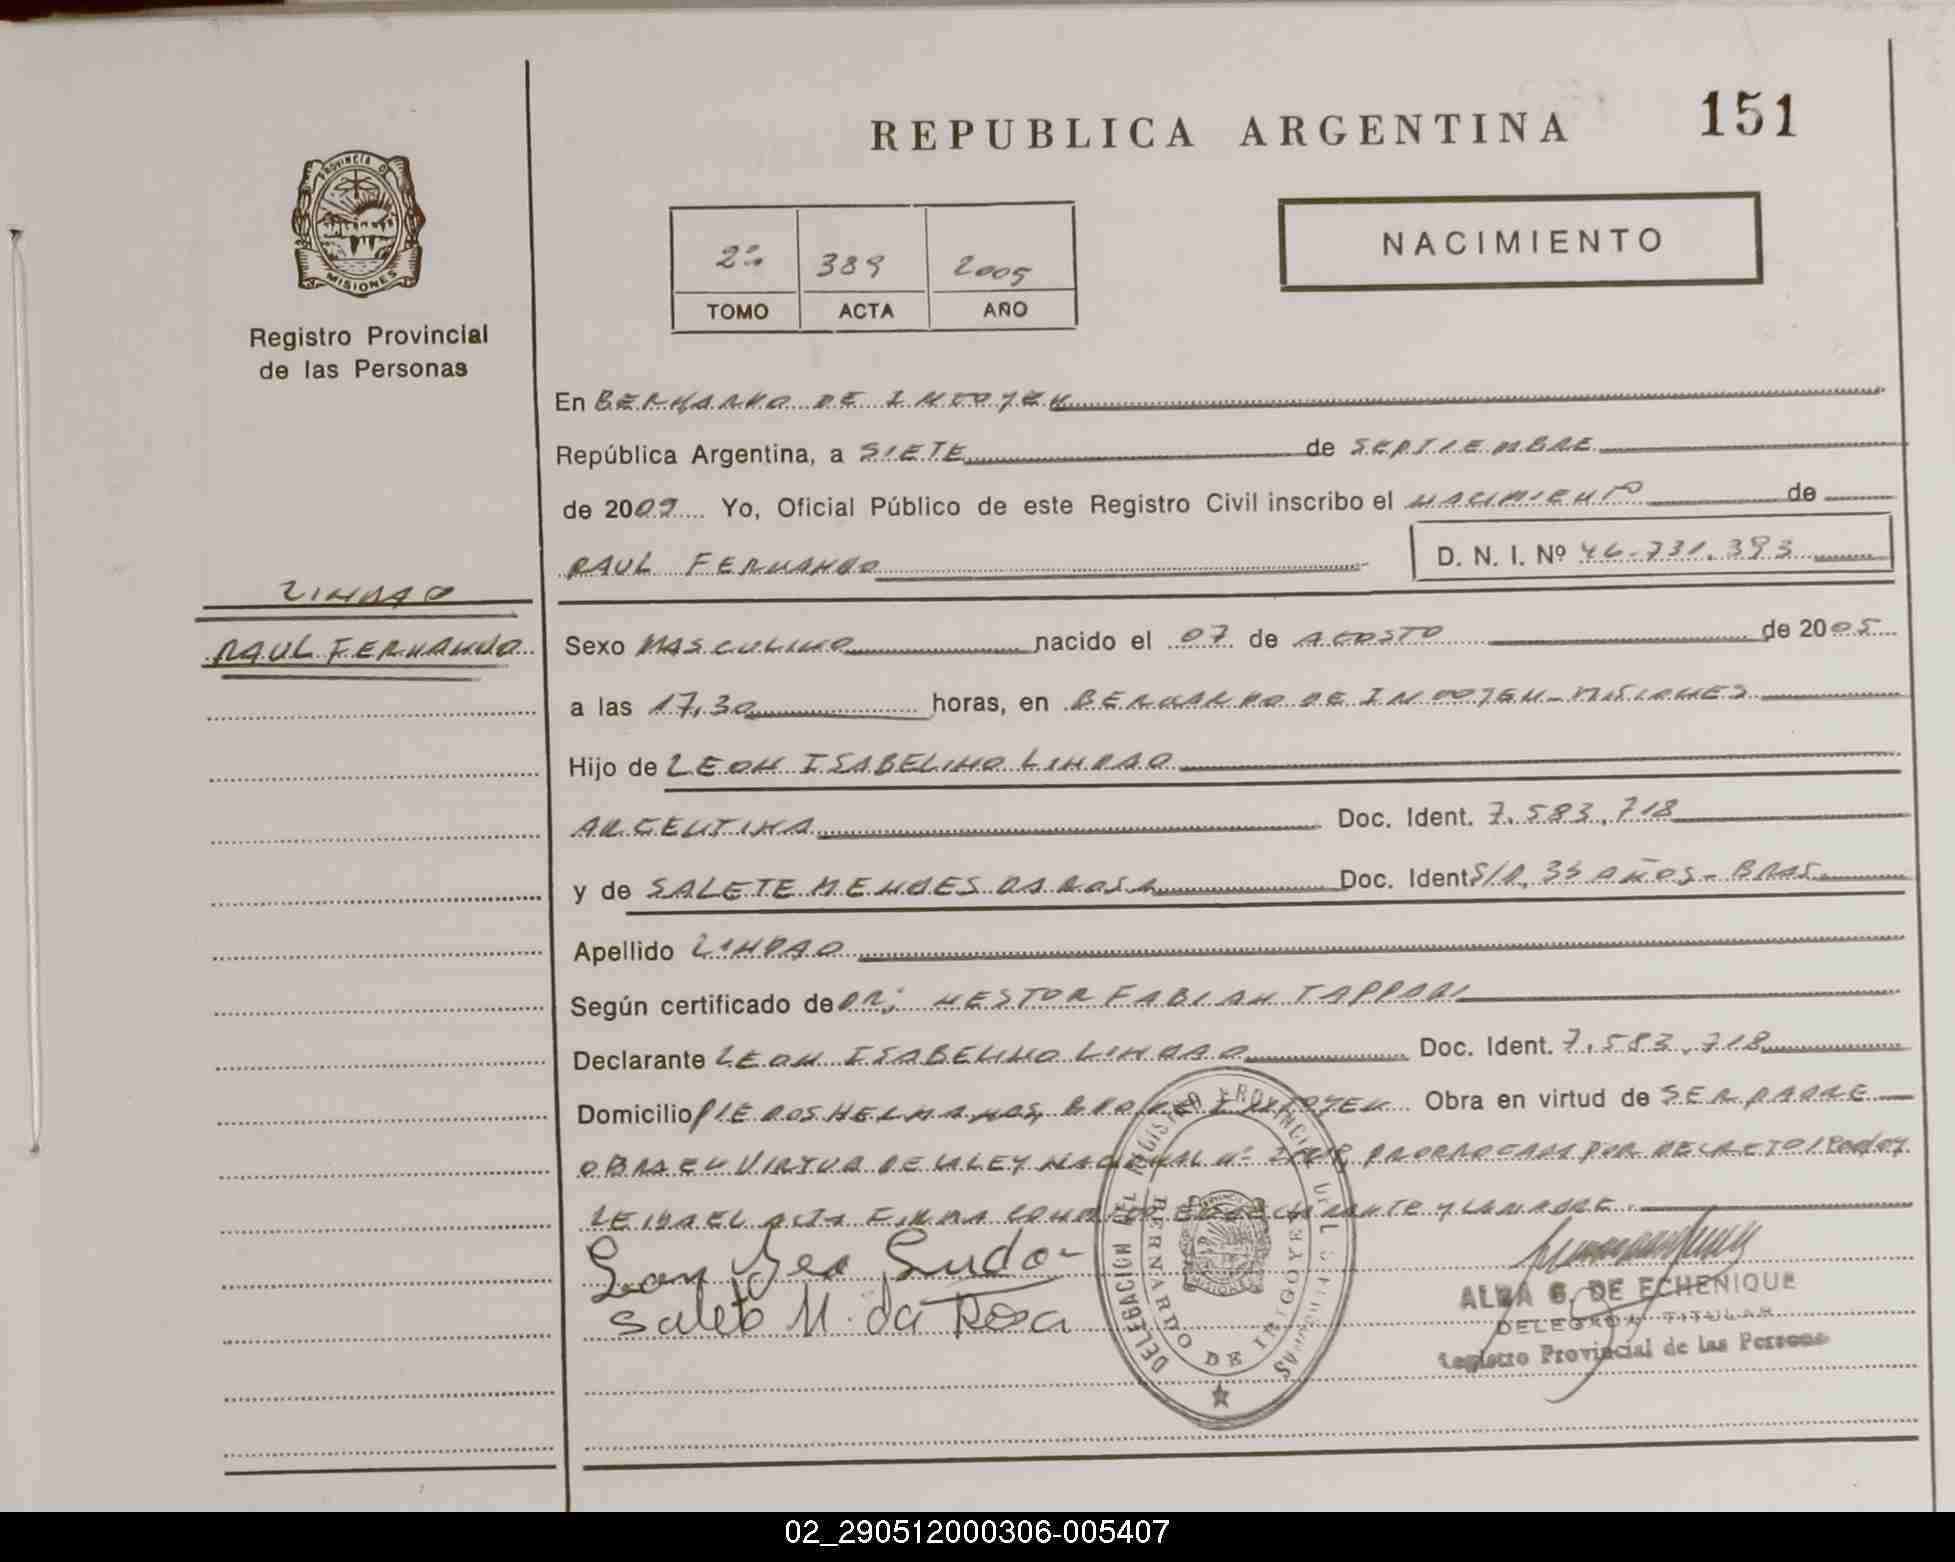 REPUBLICA ARGENTINA
151
PROVINCIA DE
MISIONES
Registro Provincial
de las Personas
2º
389
2005
TOMO
ACTA
AÑO
NACIMIENTO
En BERNARDO DE IRIGOYEN
República Argentina, a SIETE de SEPTIEMBRE
de 2009 Yo, Oficial Público de este Registro Civil inscribo el NACIMIENTO de
RAUL FERNANDO D. N. I. Nº 46.731.393
LINDAO
RAUL FERNANDO
Sexo MASCULINO nacido el 07 de AGOSTO de 2005
a las 17,30 horas, en BERNARDO DE IRIGOYEN - MISIONES
Hijo de LEON ISABELINO LINDAO
ARGENTINA Doc. Ident. 7.583.718
y de SALETE MENDES DA ROSA Doc. Ident S/D, 35 AÑOS - BRAS.
Apellido LINDAO
Según certificado de DR; NESTOR FABIAN TAPPARI
Declarante LEON ISABELINO LINDAO Doc. Ident. 7.583.718
Domicilio HERMANOS, IRIGOYEN Obra en virtud de SER PADRE
OBRA EN VIRTUD DE LA LEY NACIONAL Nº PRORROGADA POR DECRETO
LEIDA EL ACTA FIRMA CONMIGO EL DECLARANTE Y LA MADRE.
Salete M. da Rosa
DELEGACION DEL REGISTRO PROVINCIAL DE LAS PERSONAS
BERNARDO DE IRIGOYEN
ALBA G. DE ECHENIQUE
DELEGADA TITULAR
Registro Provincial de las Personas
02_290512000306-005407